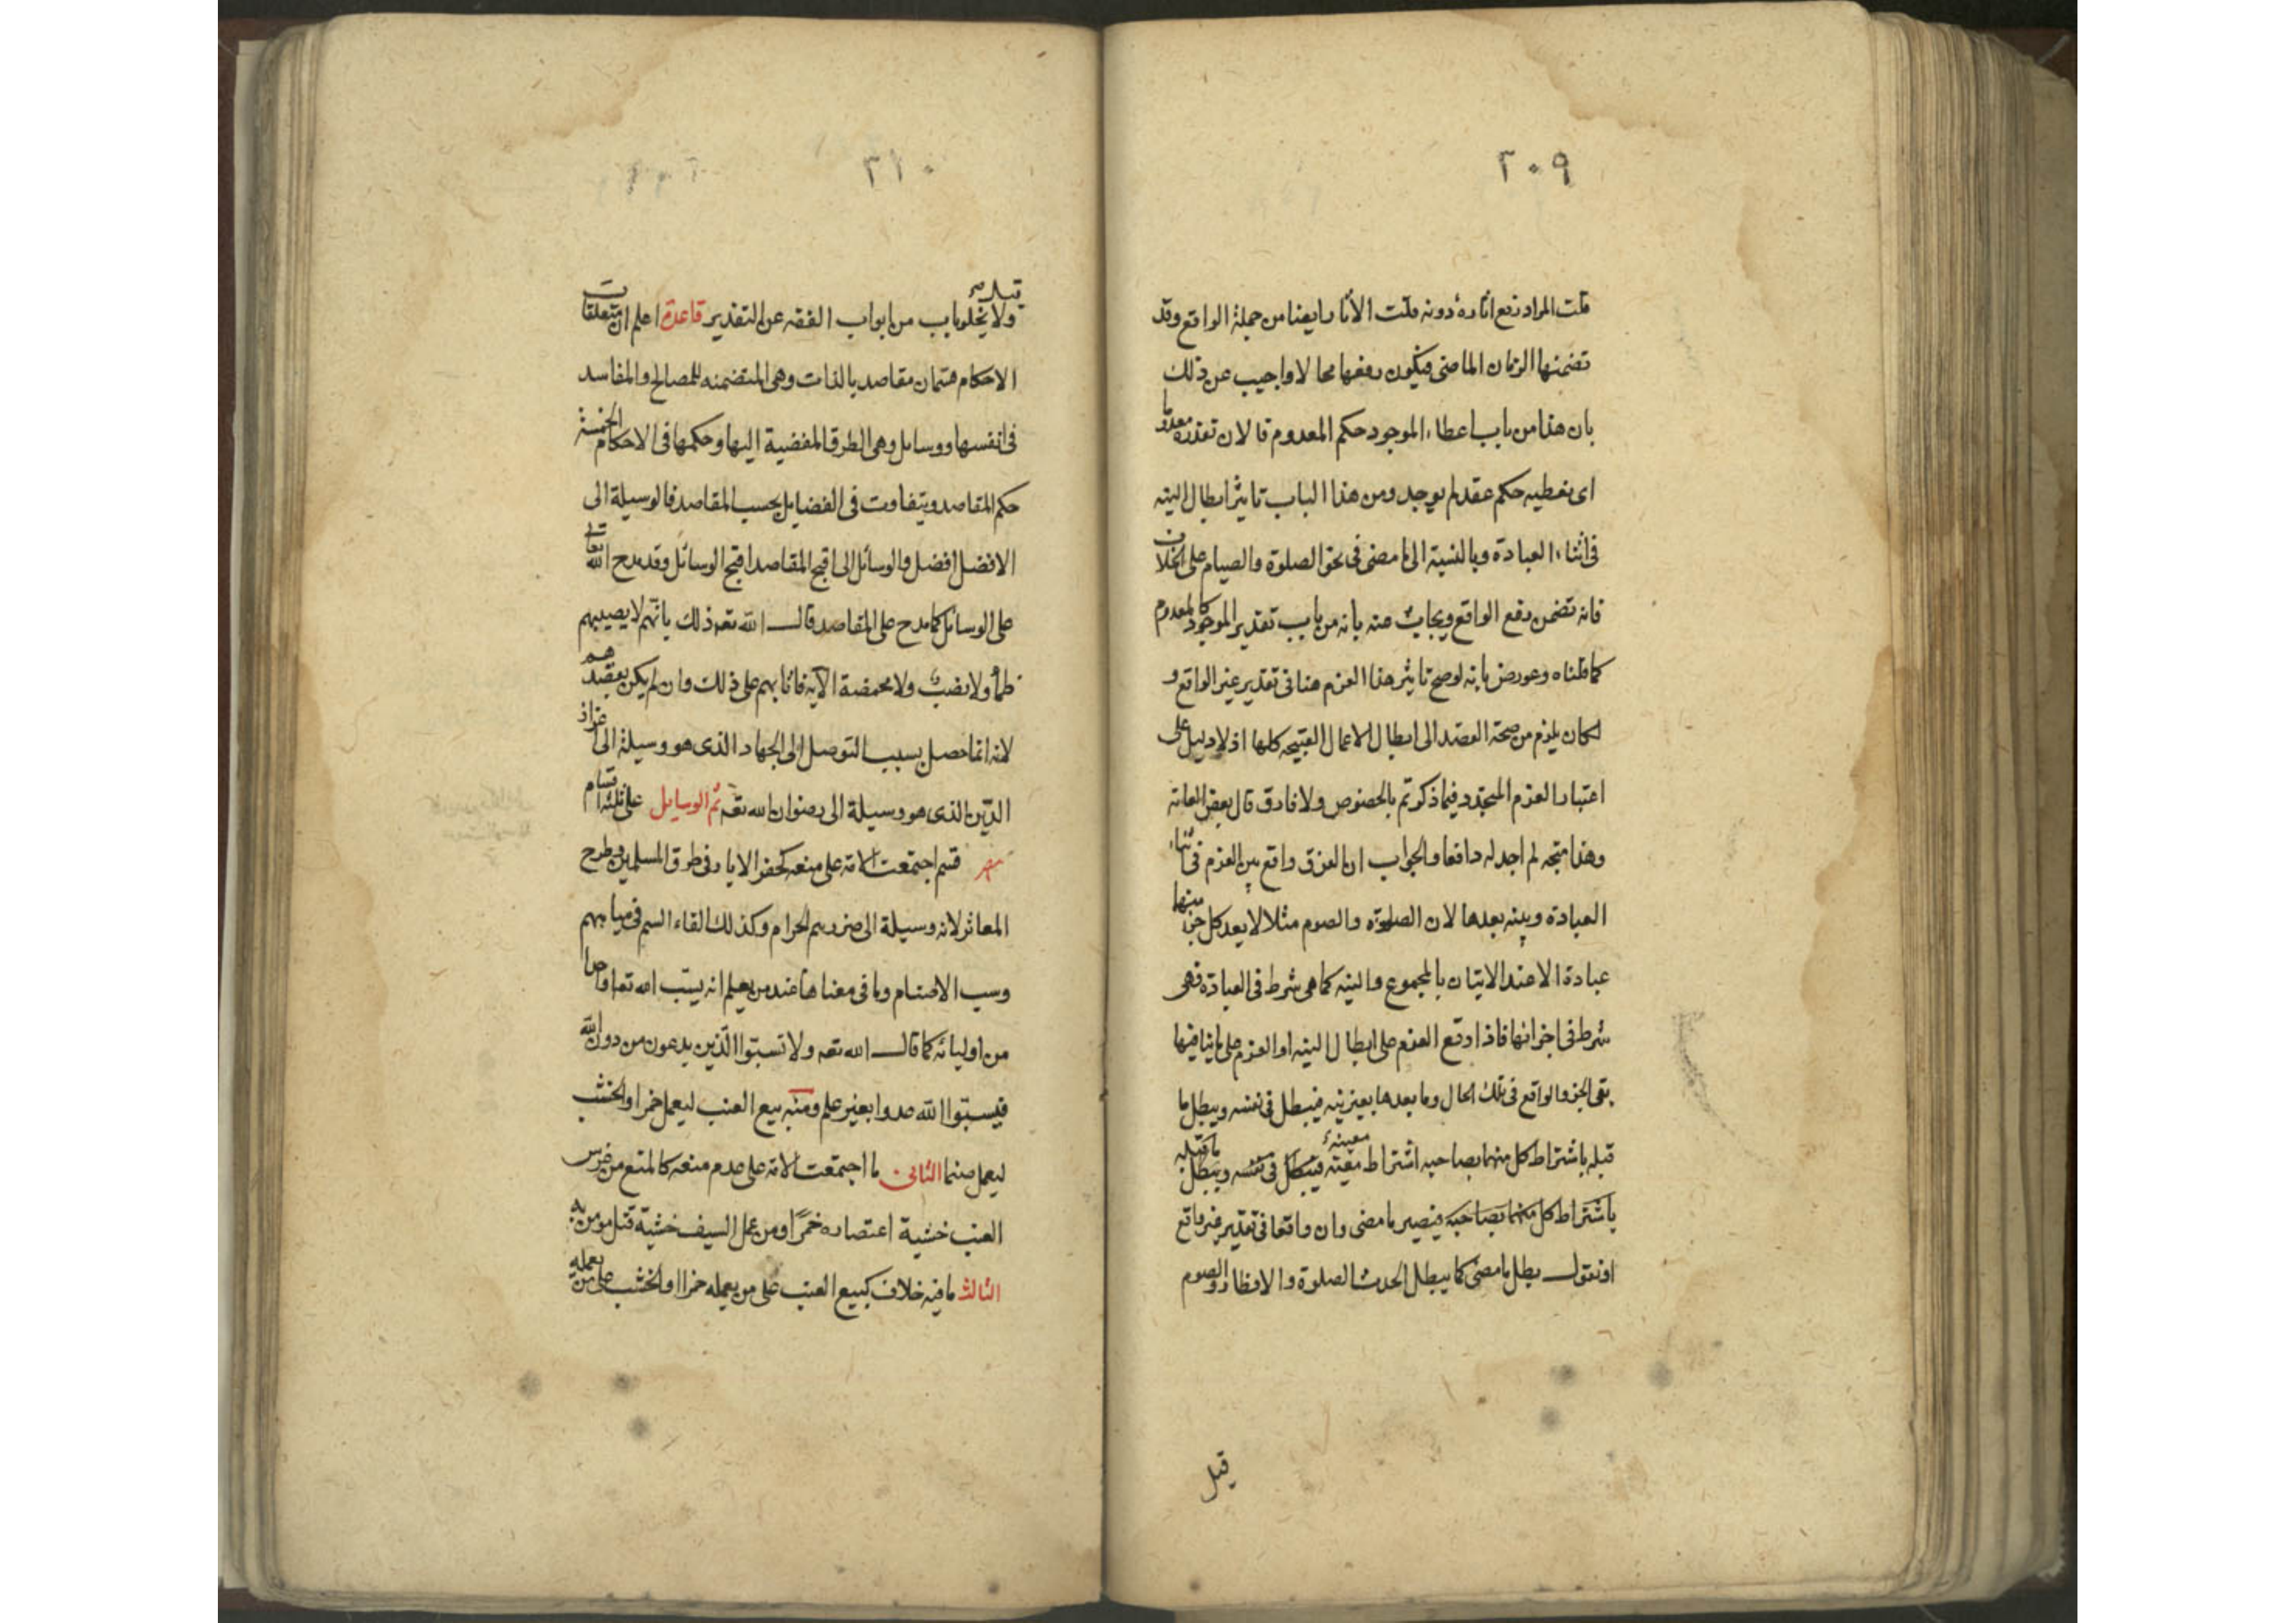 ٢٠٩
قلت المراد رفع اثاره دونه قلت الاثار ايضا من جملة الواقع وقد
تضمنها الزمان الماضى فيكون رفعها محالا واجيب عن ذلك
بان هذا من باب اعطاء الموجود حكم المعدوم قال لان تقدره معدوما
اى نعطيه حكم عقد لم يوجد ومن هذا الباب تاثير ابطال النيه
فى اثناء العبادة وبالنسبة الى ما مضى فى نحو الصلوة والصيام على الخلاف
فانه تضمن رفع الواقع ويجاب عنه بانه من باب تقدير الموجود كالمعدوم
كما قلناه وعورض بانه لو صح تاثير هذا العزم هنا فى تقدير غير الواقع و
لكان يلزم من صحة القصد الى ابطال الاعمال القبيحه كلها اذ لا دليل على
اعتبار العزم المتجدد فيما ذكرتم بالخصوص ولا فارق قال بعض العامة
وهذا متجه لم اجد له دافعا والجواب ان الفرق واقع بين العزم فى اثناء
العبادة وبينه بعدها لان الصلوة والصوم مثلا لا يعد كل جزء منها
عبادة الا عند الاتيان بالمجموع والنيه كما هى شرط فى العبادة فهى
شرط فى اجزائها فاذا وقع العزم على ابطال النيه او العزم على ما ينافيها
بقى الجزء الواقع فى تلك الحال وما بعدها بغير نيه فيبطل فى نفسه ويبطل ما
قبله باشتراط كل منهما بصاحبه اشتراط معية فيبطل فى نفسه ويبطل ما قبله
باشتراط كل منهما بصاحبه فيصير ما مضى وان واقعا فى تقدير غير واقع
او نقول يبطل ما مضى كما يبطل الحدث الصلوة والافطار الصوم
قبل
٣١٠
قبله
ولا يخلو باب من ابواب الفقه عن التقدير قاعدة اعلم ان متعلقات
الاحكام قسمان مقاصد بالذات وهى المتضمنه للمصالح والمفاسد
فى انفسها ووسايل وهى الطرق المفضية اليها وحكمها فى الاحكام الخمسة
حكم المقاصد ويتفاوت فى الفضايل بحسب المقاصد فالوسيلة الى
الافضل افضل والوسائل الى اقبح المقاصد اقبح الوسائل وقد مدح الله تعالى
على الوسائل كما مدح على المقاصد قال الله تعه ذلك بانهم لا يصيبهم
ظمأ ولا نصب ولا مخمصة الآيه فاثابهم على ذلك وان لم يكن بقصدهم
لانه انما حصل بسبب التوصل الى الجهاد الذى هو وسيلة الى اعزاز
الدين الذى هو وسيلة الى رضوان الله تعه ثم الوسايل على ثلثة اقسام
قسم اجتمعت الامة على منعه كحفر الابار فى طرق المسلمين وطرح
المعاثر لانه وسيلة الى ضررهم الحرام وكذلك القاء السم فى مياههم
وسب الاصنام وما فى معناها عند من يعلم انه يسب الله تعا واحدا
من اوليائه كما قال الله تعه ولا تسبوا الذين يدعون من دون الله
فيسبوا الله عدوا بغير علم ومنه بيع العنب ليعمل خمرا والخشب
ليعمل صنما الثانى ما اجتمعت الامة على عدم منعه كالمنع من غرس
العنب خشية اعتصاره خمرا ومن عمل السيف خشية قتل مومن به
الثالث ما فيه خلاف كبيع العنب على من يعمله خمرا او الخشب على من يعمله